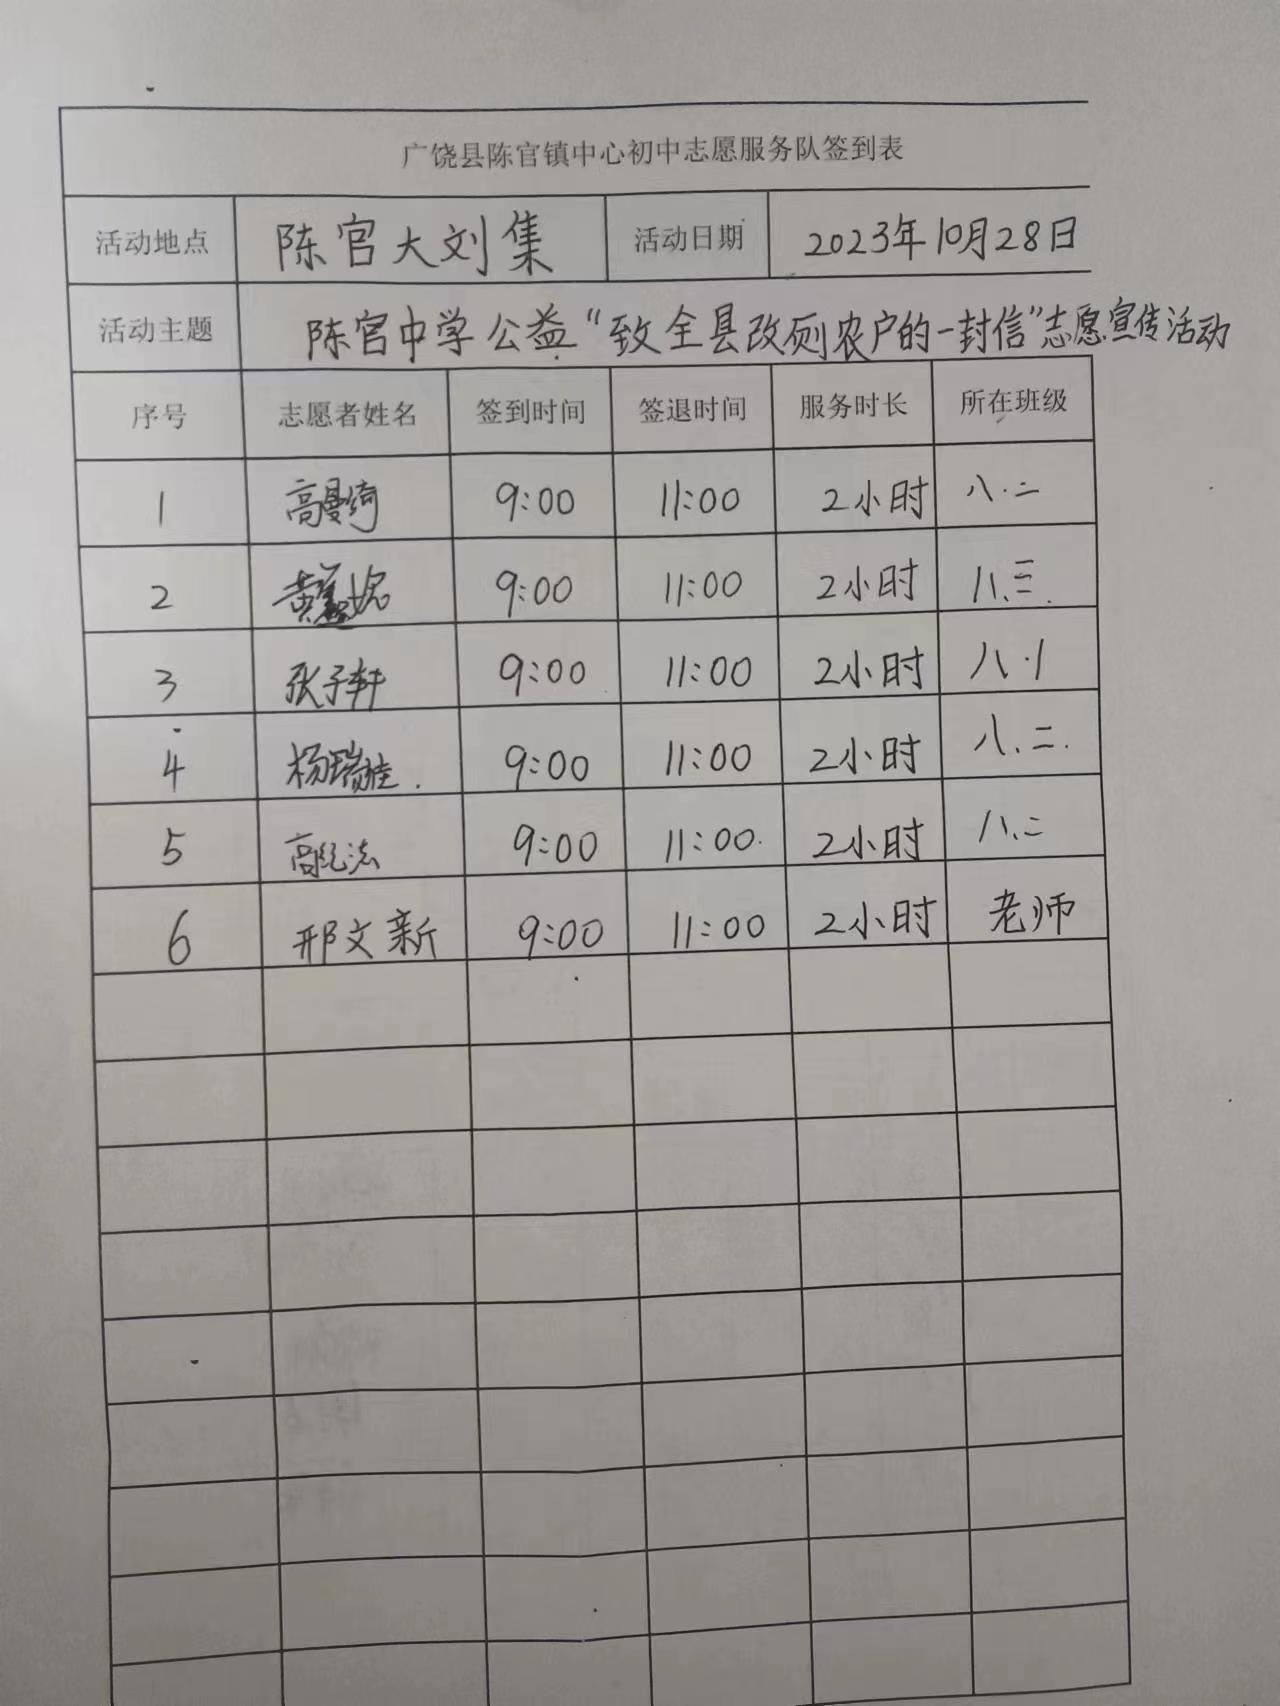 广饶县陈官镇中心初中志愿服务队签到表
活动地点 陈官大刘集 活动日期 2023年10月28日
活动主题 陈官中学公益“致全县改厕农户的一封信”志愿宣传活动
序号 志愿者姓名 签到时间 签退时间 服务时长 所在班级
1 高曼绮 9:00 11:00 2小时 八.二
2 9:00 11:00 2小时 八.三.
3 张子轩 9:00 11:00 2小时 八.1
4 9:00 11:00 2小时 八.二.
5 9:00 11:00 2小时 八.二
6 邢文新 9:00 11:00 2小时 老师